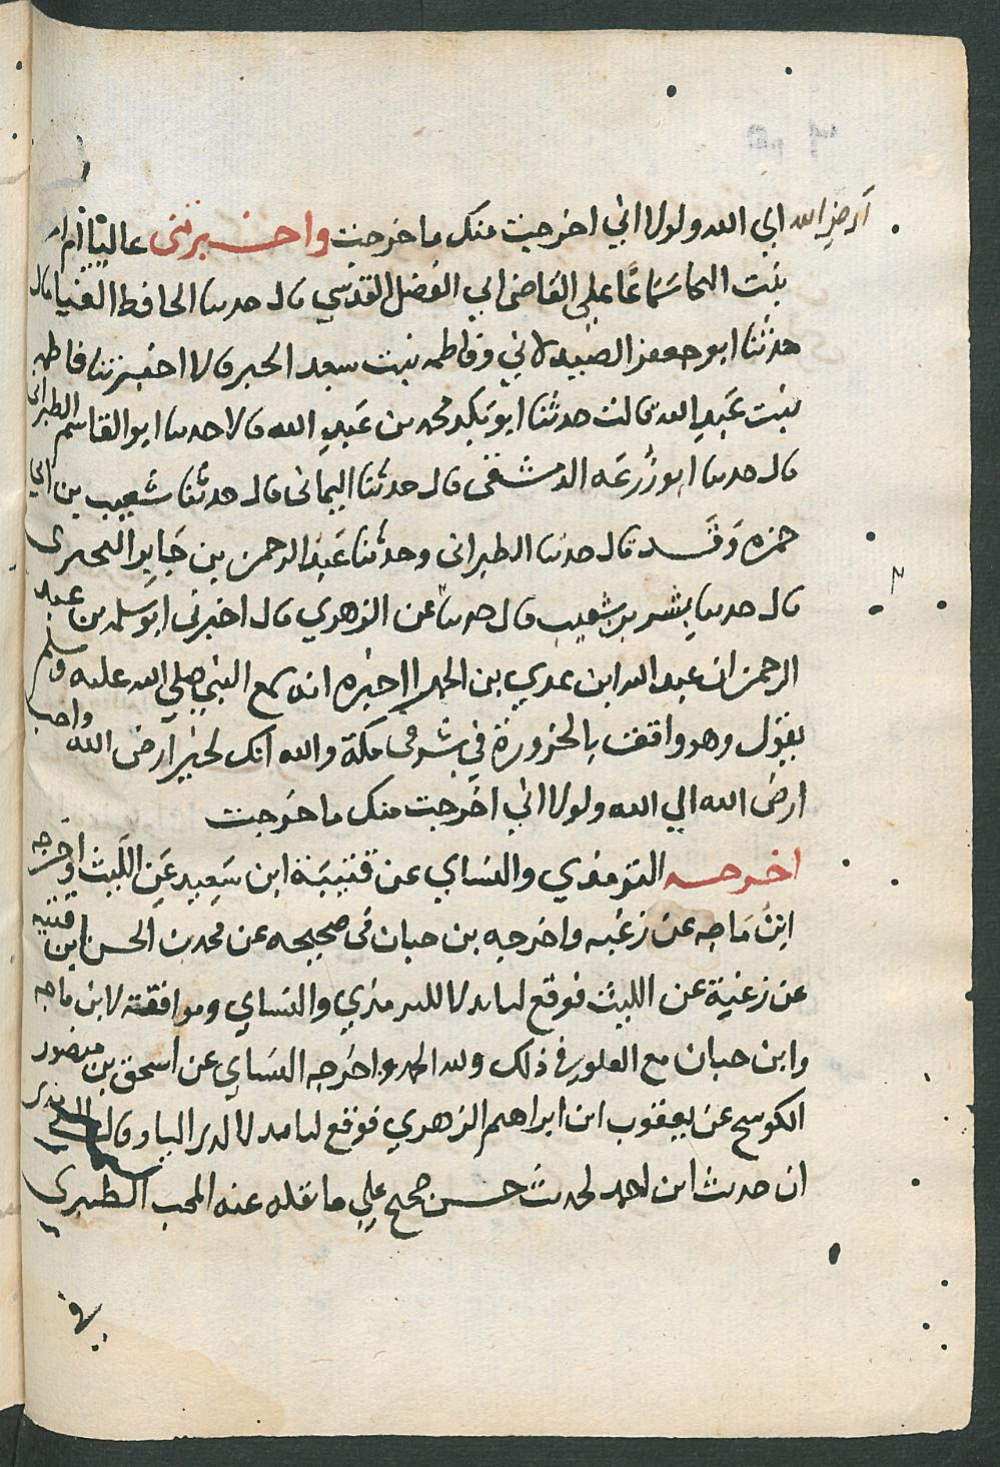 أرض الله الي الله ولولا اني اخرجت منك ما خرجت واخبرتني عاليا ام
بنت سماعا علي القاضي ابي الفضل القدسي قال حدثنا الحافظ الضيا قال
حدثنا ابو جعفر الصيدلاني وفاطمه بنت سعد الخير قالا اخبرتنا فاطمه
بنت عبد الله قالت حدثنا ابو بكر محمد بن عبد الله قالا حدثنا ابو القاسم الطبراني
قال حدثنا ابو زرعه الدمشقي قال حدثنا اليماني قال حدثنا شعيب بن ابي
حمزه قال حدثنا الطبراني وحدثنا عبد الرحمن بن جابر البحري
قال حدثنا بشر بن شعيب قال حدثنا عن الزهري قال اخبرني ابو سلمه بن عبد
الرحمن ان عبد الله ابن عدي بن الحمرا اخبره انه سمع النبي صلي الله عليه وسلم
يقول وهو واقف بالحزورة في شرقي مكة والله انك لخير ارض الله واحب
ارض الله الي الله ولولا اني اخرجت منك ما خرجت
اخرجه الترمذي والنساي عن قتيبة ابن سعيد عن الليث واخرجه
ابن ماجه عن زغبه واخرجه بن حبان في صحيحه عن محمد بن الحسن ابن قتيبه
عن زغبة عن الليث فوقع لنا بدلا للترمذي والنساي وموافقة لابن ماجه
وابن حبان مع العلو في ذلك ولله الحمد واخرجه النساي عن اسحق بن منصور
الكوسج عن يعقوب ابن ابراهيم الزهري فوقع لنا بدلا وقال الترمذي
ان حديث ابن لحديث حسن صحيح علي ما نقله عنه المحب الطبري
في